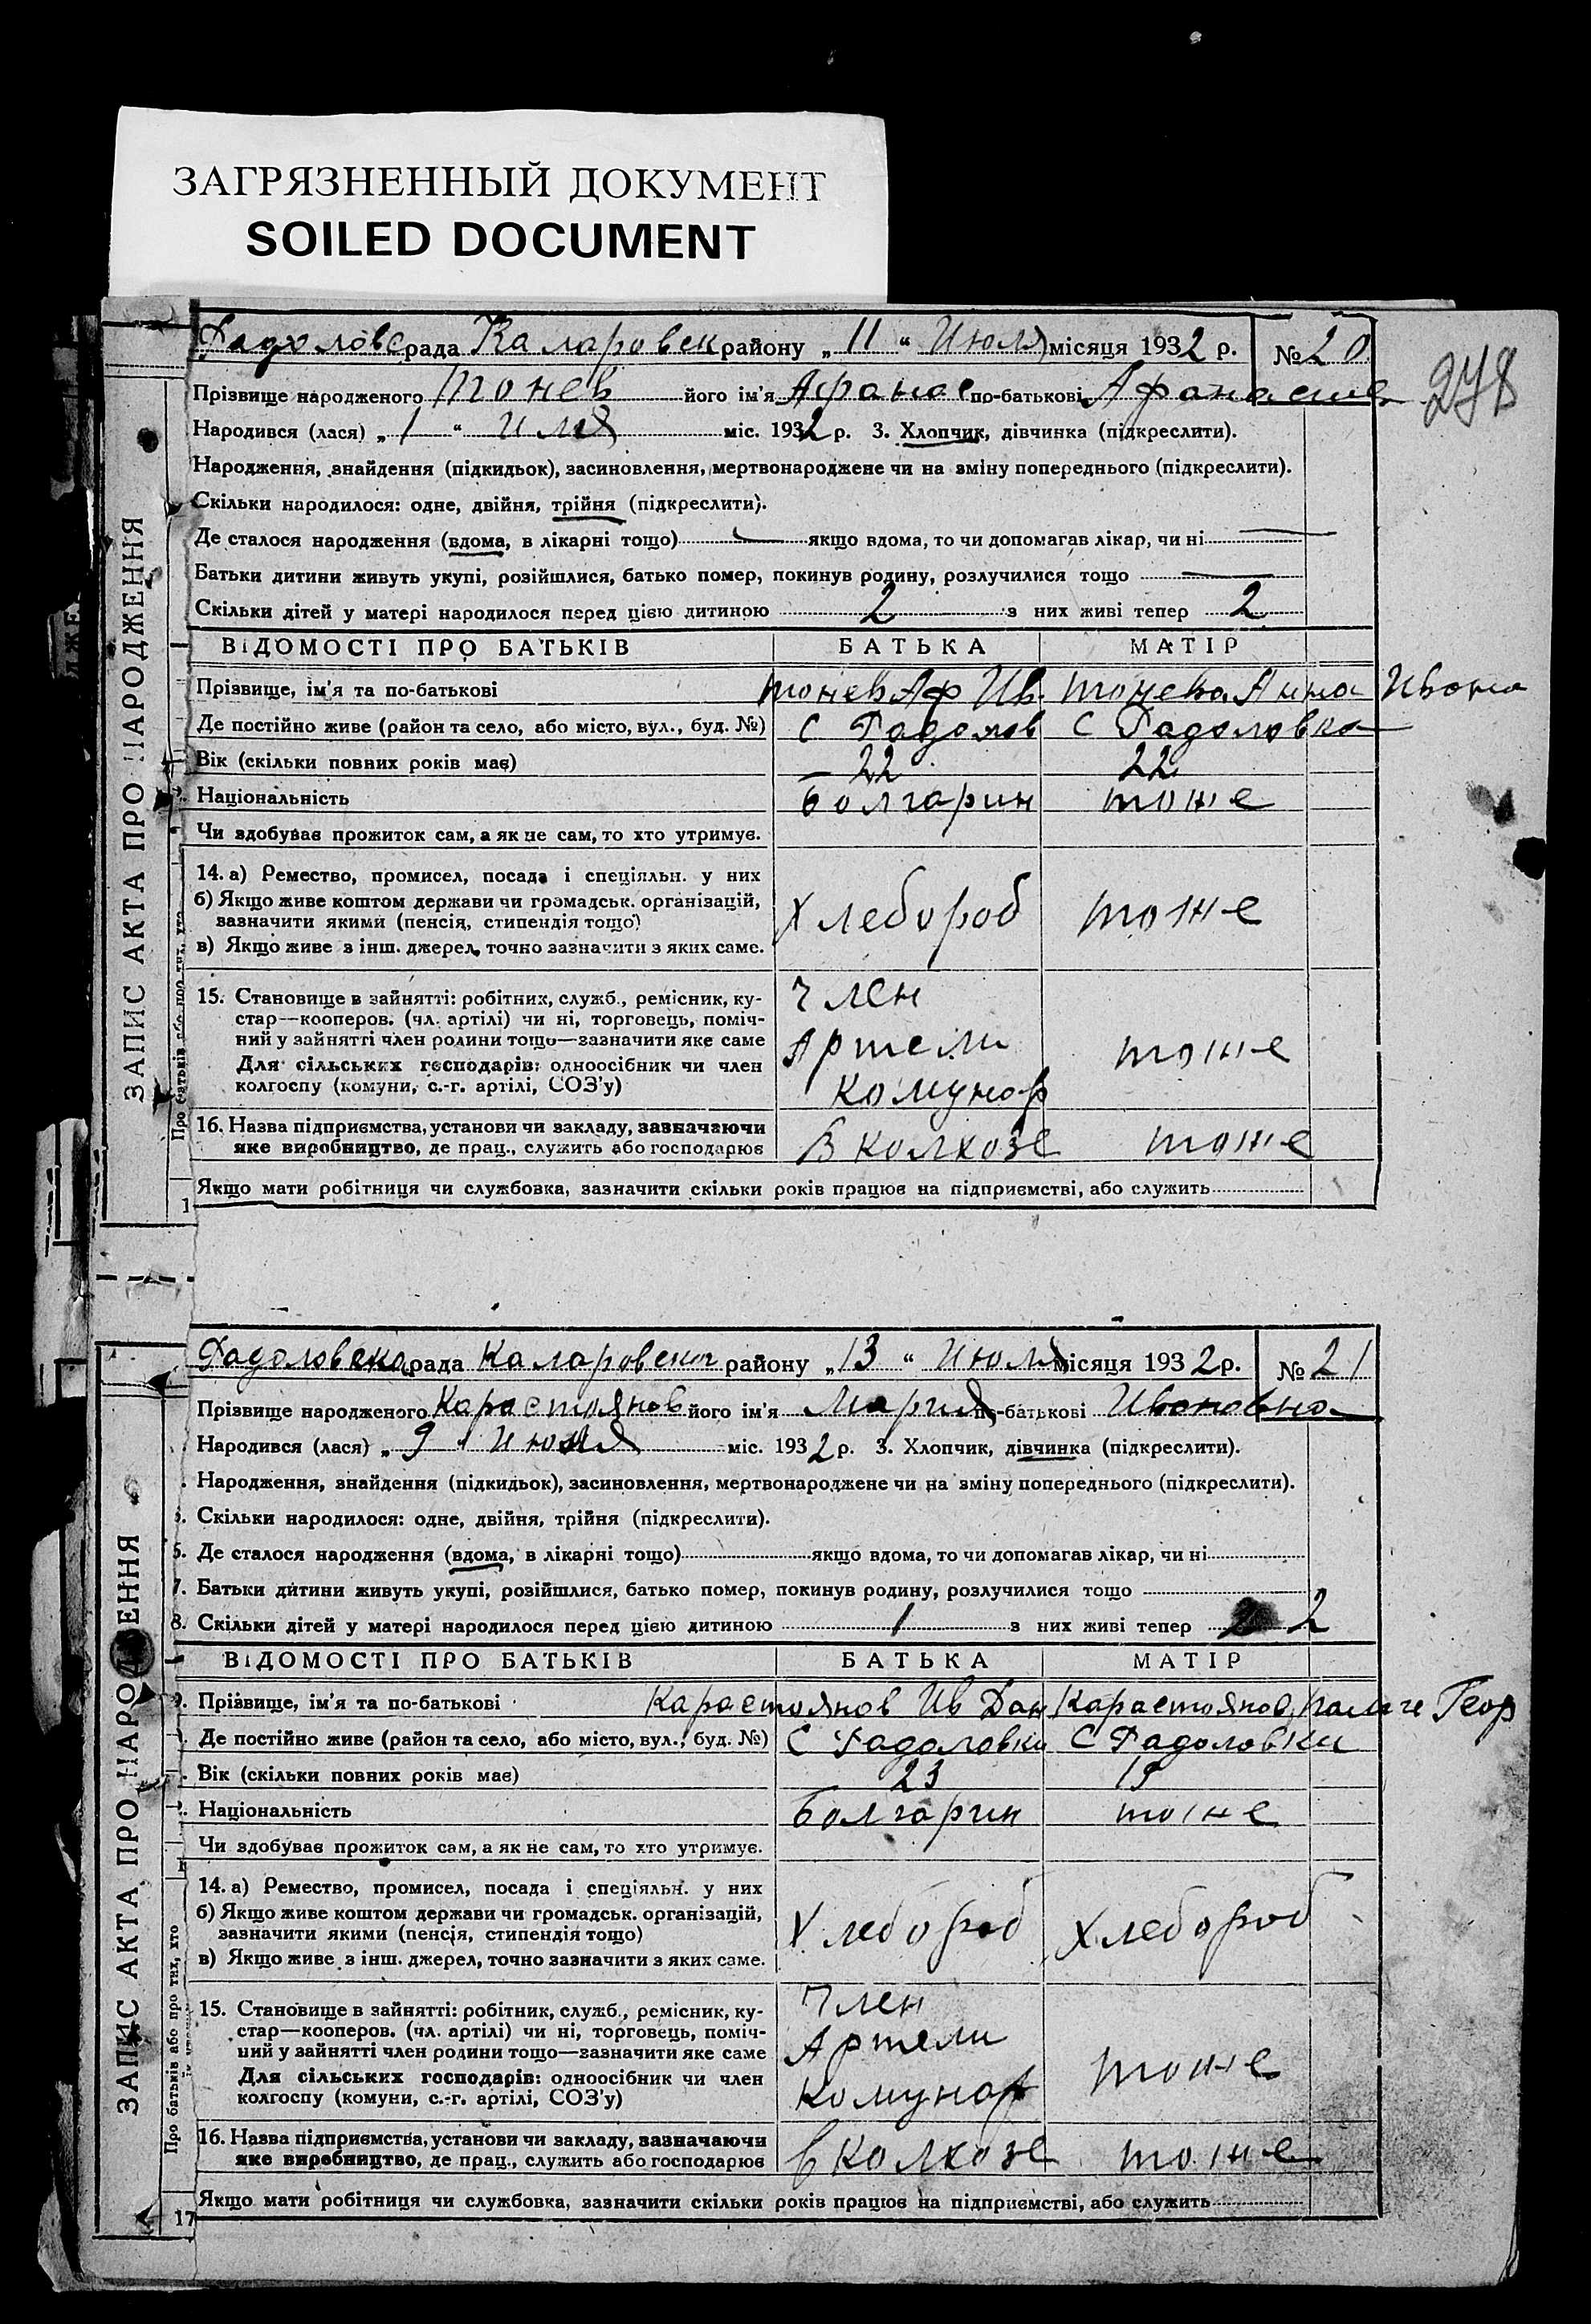 ЗАГРЯЗНЕННЫЙ ДОКУМЕНТ
SOILED DOCUMENT
278
ЗАПИС АКТА ПРО НАРОДЖЕННЯ
рада Коларовск району „ 11 “ Июля місяця 1932 р. № 20
Прізвище народженого Тонев його ім'я Афанас по-батькові
Народився (лася) „ 1 “ міс. 1932 р. 3. Хлопчик, дівчинка (підкреслити).
Народження, знайдення (підкидьок), засиновлення, мертвонароджене чи на зміну попереднього (підкреслити).
Скільки народилося: одне, двійня, трійня (підкреслити).
Де сталося народження (вдома, в лікарні тощо) якщо вдома, то чи допомагав лікар, чи ні
Батьки дитини живуть укупі, розійшлися, батько помер, покинув родину, розлучилися тощо
Скільки дітей у матері народилося перед цією дитиною 2 з них живі тепер 2
ВІДОМОСТІ ПРО БАТЬКІВ БАТЬКА МАТІР
Прізвище, ім'я та по-батькові Тонев Аф Ив. Тонева Анна Ивана
Де постійно живе (район та село, або місто, вул., буд. №) С Радолов С Радоловка
Вік (скільки повних років має) 22 22
Національність болгарин тоже
Чи здобував прожиток сам, а як не сам, то хто утримує.
14. а) Ремество, промисел, посада і спеціяльн. у них
б) Якщо живе коштом держави чи громадськ. організацій,
зазначити якими (пенсія, стипендія тощо)
в) Якщо живе з інш. джерел, точно зазначити з яких саме.
Хлебороб тоже
15. Становище в зайнятті: робітник, служб., ремісник, ку-
стар—кооперов. (чл. артілі) чи ні, торговець, поміч-
ний у зайнятті член родини тощо—зазначити яке саме
Для сільських господарів: одноосібник чи член
колгоспу (комуни, с.-г. артілі, СОЗ'у)
член
Артели
комунар
тоже
16. Назва підприємства, установи чи закладу, зазначаючи
яке виробництво, де прац., служить або господарює
В колхозе тоже
Якщо мати робітниця чи службовка, зазначити скільки років працює на підприємстві, або служить
ЗАПИС АКТА ПРО НАРОДЖЕННЯ
Радоловска рада Коларовског району „ 13 “ Июля місяця 1932 р. № 21
Прізвище народженого Карастоянов його ім'я Мария по-батькові Ивановна
Народився (лася) „ 9 “ міс. 1932 р. 3. Хлопчик, дівчинка (підкреслити).
Народження, знайдення (підкидьок), засиновлення, мертвонароджене чи на зміну попереднього (підкреслити).
Скільки народилося: одне, двійня, трійня (підкреслити).
Де сталося народження (вдома, в лікарні тощо) якщо вдома, то чи допомагав лікар, чи ні
7. Батьки дитини живуть укупі, розійшлися, батько помер, покинув родину, розлучилися тощо
8. Скільки дітей у матері народилося перед цією дитиною 1 з них живі тепер 2
ВІДОМОСТІ ПРО БАТЬКІВ БАТЬКА МАТІР
Прізвище, ім'я та по-батькові Карастоянов Ив Дан Карастоянов Геор
Де постійно живе (район та село, або місто, вул., буд. №) С Радоловки С Радоловки
Вік (скільки повних років має) 23 19
Національність болгарин тоже
Чи здобував прожиток сам, а як не сам, то хто утримує.
14. а) Ремество, промисел, посада і спеціяльн. у них
б) Якщо живе коштом держави чи громадськ. організацій,
зазначити якими (пенсія, стипендія тощо)
в) Якщо живе з інш. джерел, точно зазначити з яких саме.
Хлебороб Хлебороб
15. Становище в зайнятті: робітник, служб., ремісник, ку-
стар—кооперов. (чл. артілі) чи ні, торговець, поміч-
ний у зайнятті член родини тощо—зазначити яке саме
Для сільських господарів: одноосібник чи член
колгоспу (комуни, с.-г. артілі, СОЗ'у)
член
Артели
комунар
тоже
16. Назва підприємства, установи чи закладу, зазначаючи
яке виробництво, де прац., служить або господарює
в колхозе тоже
17 Якщо мати робітниця чи службовка, зазначити скільки років працює на підприємстві, або служить
Про батьків або про тих, хто